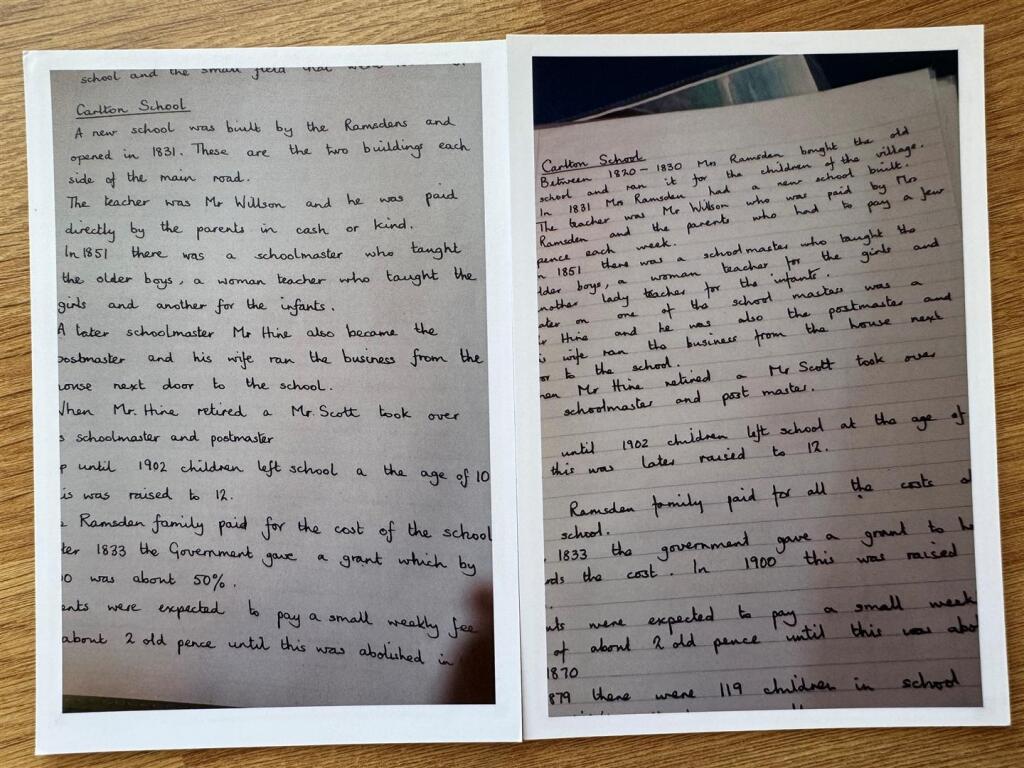 school and the small field that were
Carlton School
A new school was built by the Ramsdens and
opened in 1831. These are the two buildings each
side of the main road.
The teacher was Mr Willson and he was paid
directly by the parents in cash or kind.
In 1851 there was a schoolmaster who taught
the older boys, a woman teacher who taught the
girls and another for the infants.
A later schoolmaster Mr Hine also became the
postmaster and his wife ran the business from the
house next door to the school.
When Mr. Hine retired a Mr. Scott took over
s schoolmaster and postmaster
p until 1902 children left school a the age of 10
is was raised to 12.
e Ramsden family paid for the cost of the school
ter 1833 the Government gave a grant which by
00 was about 50%.
ents were expected to pay a small weekly fee
about 2 old pence until this was abolished in
Carlton School
Between 1820 - 1830 Mrs Ramsden bought the old
school and ran it for the children of the village.
In 1831 Mrs Ramsden had a new school built.
The teacher was Mr Willson who was paid by Mrs
Ramsden and the parents who had to pay a few
pence each week.
n 1851 there was a schoolmaster who taught the
lder boys, a woman teacher for the girls and
nother lady teacher for the infants.
ater on one of the school masters was a
r Hine and he was also the postmaster and
is wife ran the business from the house next
or to the school.
hen Mr Hine retired a Mr Scott took over
schoolmaster and post master.
until 1902 children left school at the age of
this was later raised to 12.
Ramsden family paid for all the costs o
school.
1833 the government gave a grant to he
rds the cost. In 1900 this was raised
nts were expected to pay a small week
of about 2 old pence until this was abo
1870
879 there were 119 children in school